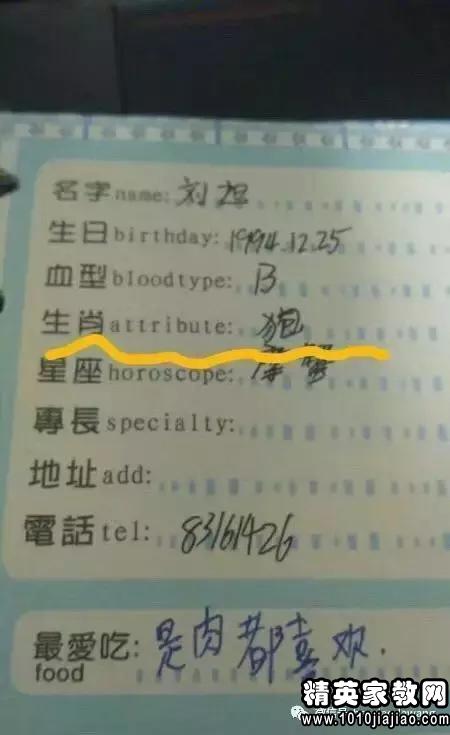 名字name: 刘旭
生日birthday: 1994.12.25
血型bloodtype: B
生肖attribute: 狍
星座horoscope: 摩蟹
專長specialty:
地址add:
電話tel: 83161426
最愛吃: 是肉都喜欢.
food
精英家教网
www.1010jiajiao.com